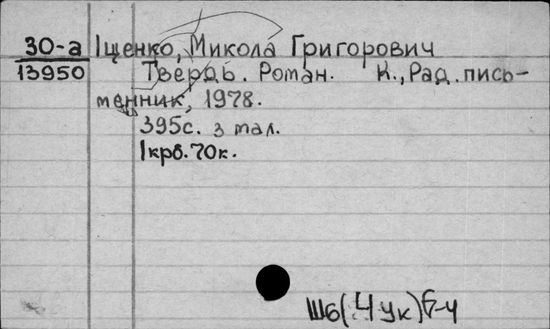 30-а Іщенко, Микола Григорович
13950 Твердь. Роман. К., Рад. пись-
менник, 1978.
395с. з тал.
1крб. 70к.
Ш6(4Ук)6-4